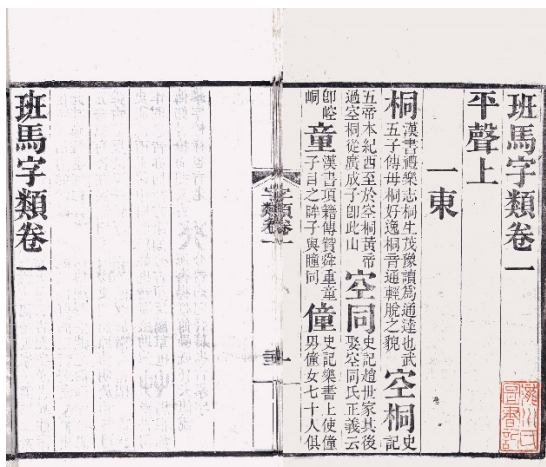 班馬字類卷一
平聲上
一東
桐漢書禮樂志桐生茂豫讀爲通達也武五子傳毋桐好逸桐音通輕脫之貌空桐史記
五帝本紀西至於空桐黃帝過空桐從廣成子卽此山空同史記趙世家其後娶空同氏正義云
卽崆峒童漢書項籍傳贊舜重童子目之眸子與瞳同僮史記樂書上使僮男僮女七十人俱
字類卷一
一
班馬字類卷一